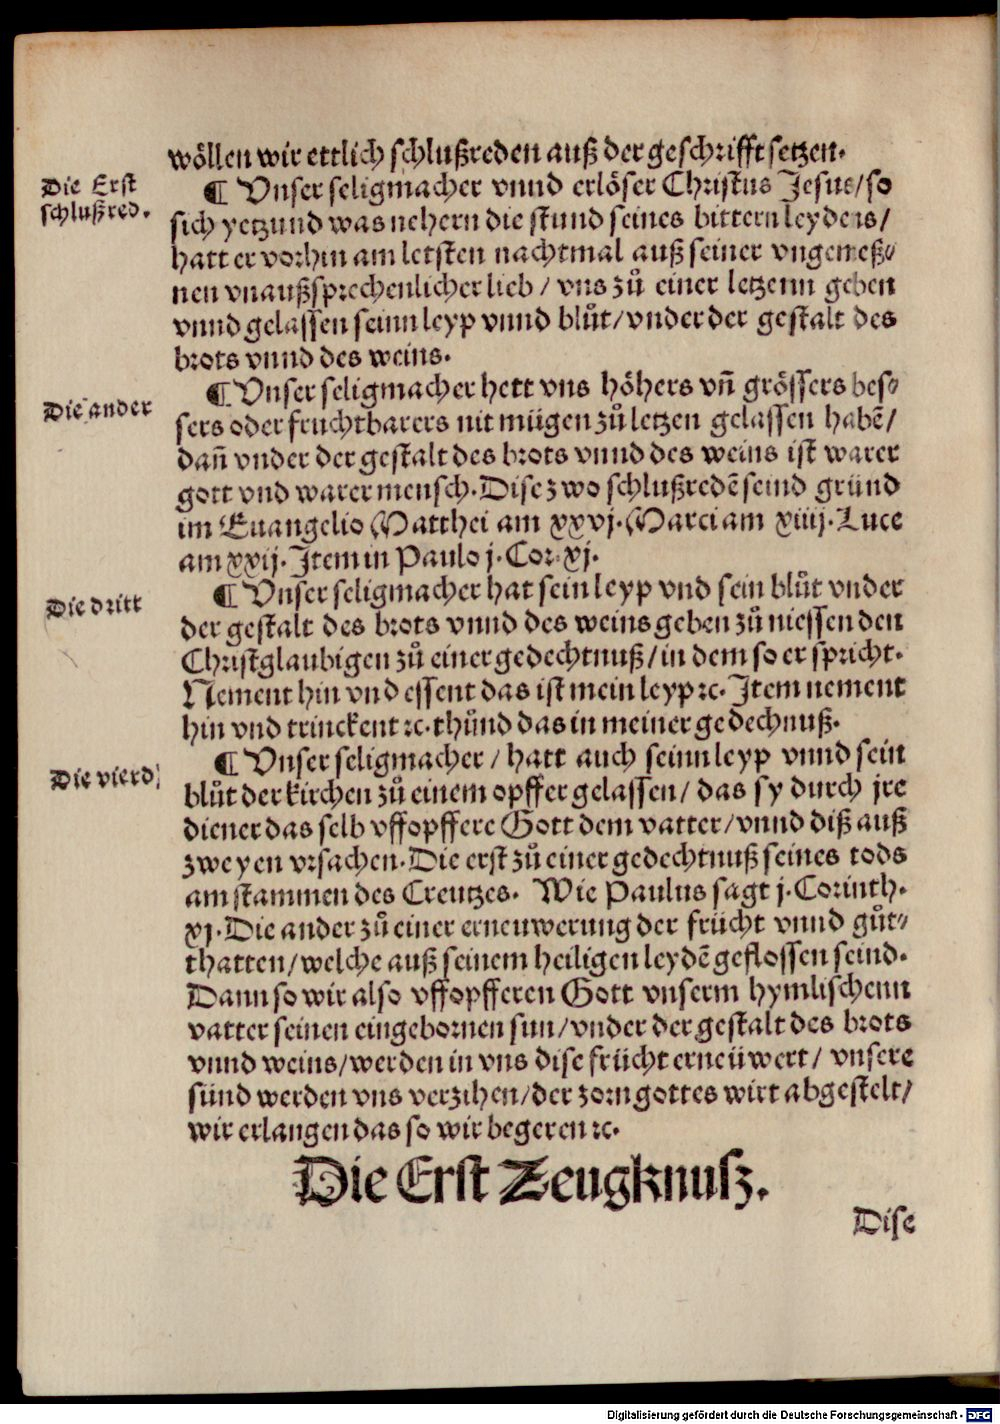 wöllen wir ettlich schlußreden auß der geschrifft setzen.
Die Erst
schlußred.
¶ Vnser seligmacher vnnd erlöser Christus Jesus/so
sich yetzund was nehern die stund seines bittern leydens/
hatt er vorhin am letsten nachtmal auß seiner vngemeß⸗
nen vnaußsprechenlicher lieb / vns zů einer letzenn geben
vnnd gelassen seinn leyp vnnd blůt/vnder der gestalt des
brots vnnd des weins.
Die ander
¶ Vnser seligmacher hett vns höhers vñ grössers bes⸗
sers oder fruchtbarers nit mügen zů letzen gelassen habẽ/
dañ vnder der gestalt des brots vnnd des weins ist warer
gott vnd warer mensch. Dise zwo schlußredẽ seind gründ
im Euangelio Matthei am xxvj. Marci am xiiij. Luce
am xxij. Item in Paulo j. Cor. xj.
Die dritt
¶ Vnser seligmacher hat sein leyp vnd sein blůt vnder
der gestalt des brots vnnd des weins geben zů niessen den
Christglaubigen zů einer gedechtnuß/in dem so er spricht.
Nement hin vnd essent das ist mein leyp ꝛc. Item nement
hin vnd trinckent ꝛc. thůnd das in meiner gedechnuß.
Die vierd
¶ Vnser seligmacher / hatt auch seinn leyp vnnd sein
blůt der kirchen zů einem opffer gelassen/ das sy durch jre
diener das selb vffopffere Gott dem vatter/vnnd diß auß
zweyen vrsachen. Die erst zů einer gedechtnuß seines tods
am stammen des Creutzes. Wie Paulus sagt j. Corinth.
xj. Die ander zů einer erneuwerung der frücht vnnd gůt⸗
thatten/welche auß seinem heiligen leydẽ geflossen seind.
Dann so wir also vffopfferen Gott vnserm hymlischenn
vatter seinen eingebornen sun/vnder der gestalt des brots
vnnd weins/werden in vns dise frücht erneüwert/ vnsere
sünd werden vns verzihen/der zorn gottes wirt abgestelt/
wir erlangen das so wir begeren ꝛc.
Die Erst Zeugknusz.
Dise
Digitalisierung gefördert durch die Deutsche Forschungsgemeinschaft - DFG